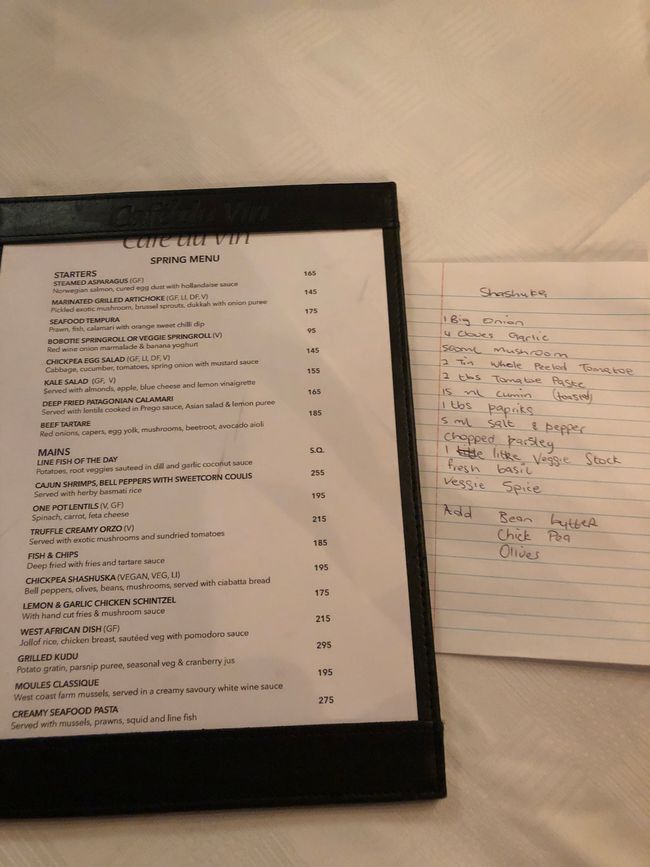 Café du Vin
Café du Vin
SPRING MENU
STARTERS
STEAMED ASPARAGUS (GF) 165
Norwegian salmon, cured egg dust with hollandaise sauce
MARINATED GRILLED ARTICHOKE (GF, LI, DF, V) 145
Pickled exotic mushroom, brussel sprouts, dukkah with onion puree
SEAFOOD TEMPURA 175
Prawn, fish, calamari with orange sweet chilli dip
BOBOTIE SPRINGROLL OR VEGGIE SPRINGROLL (V) 95
Red wine onion marmalade & banana yoghurt
CHICKPEA EGG SALAD (GF, LI, DF, V) 145
Cabbage, cucumber, tomatoes, spring onion with mustard sauce
KALE SALAD (GF, V) 155
Served with almonds, apple, blue cheese and lemon vinaigrette
DEEP FRIED PATAGONIAN CALAMARI 165
Served with lentils cooked in Prego sauce, Asian salad & lemon puree
BEEF TARTARE 185
Red onions, capers, egg yolk, mushrooms, beetroot, avocado aioli
MAINS
LINE FISH OF THE DAY S.Q.
Potatoes, root veggies sauteed in dill and garlic coconut sauce
CAJUN SHRIMPS, BELL PEPPERS WITH SWEETCORN COULIS 255
Served with herby basmati rice
ONE POT LENTILS (V, GF) 195
Spinach, carrot, feta cheese
TRUFFLE CREAMY ORZO (V) 215
Served with exotic mushrooms and sundried tomatoes
FISH & CHIPS 185
Deep fried with fries and tartare sauce
CHICKPEA SHASHUSKA (VEGAN, VEG, LI) 195
Bell peppers, olives, beans, mushrooms, served with ciabatta bread
LEMON & GARLIC CHICKEN SCHINTZEL 175
With hand cut fries & mushroom sauce
WEST AFRICAN DISH (GF) 215
Jollof rice, chicken breast, sautéed veg with pomodoro sauce
GRILLED KUDU 295
Potato gratin, parsnip puree, seasonal veg & cranberry jus
MOULES CLASSIQUE 195
West coast farm mussels, served in a creamy savoury white wine sauce
CREAMY SEAFOOD PASTA 275
Served with mussels, prawns, squid and line fish
Shashuka
1 Big onion
4 cloves Garlic
500ml mushroom
2 Tin whole Peeled Tomatoe
2 tbs Tomatoe Paste
15 ml cumin (toasted)
1 tbs paprika
5 ml salt & pepper
chopped parsley
1 litre veggie stock
fresh basil
veggie spice
Add Bean butter
Chick Pea
Olives